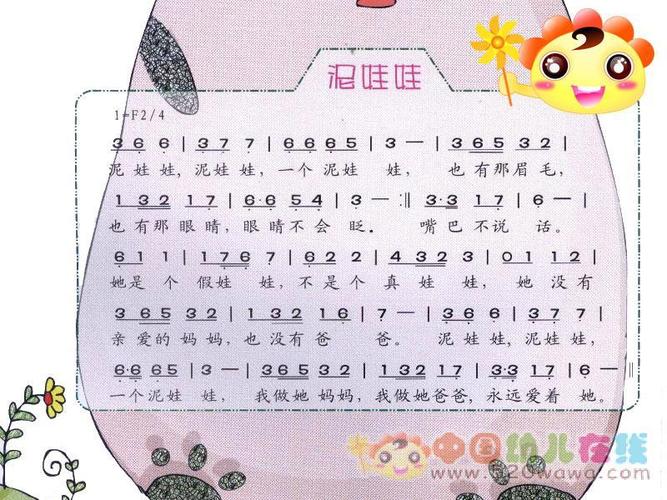 泥娃娃
1=F2/4
3 6 6 | 3 7 7 | 6 6 6 5 | 3 — | 3 6 5 3 2 |
泥娃娃,泥娃娃,一个泥娃 娃, 也有那眉毛,
1 3 2 1 7 | 6·6 5 4 | 3 — :‖ 3·3 1 7 | 6 — |
也有那眼睛,眼睛不会 眨. 嘴巴不说 话。
6 1 1 | 1 7 6 7 | 6 2 2 | 4 3 2 3 | 0 1 1 2 |
她是个假娃 娃,不是个真娃 娃,她没有
3 6 5 3 2 | 1 3 2 1 6 | 7 — | 3 6 6 | 3 7 7 |
亲爱的妈妈,也没有爸 爸。 泥娃娃,泥娃娃,
6·6 6 5 | 3 — | 3 6 5 3 2 | 1 3 2 1 7 | 3·3 1 7 | 6 — ‖
一个泥娃 娃, 我做她妈妈,我做她爸爸,永远爱着 她。
中国幼儿在线
www.520wawa.com